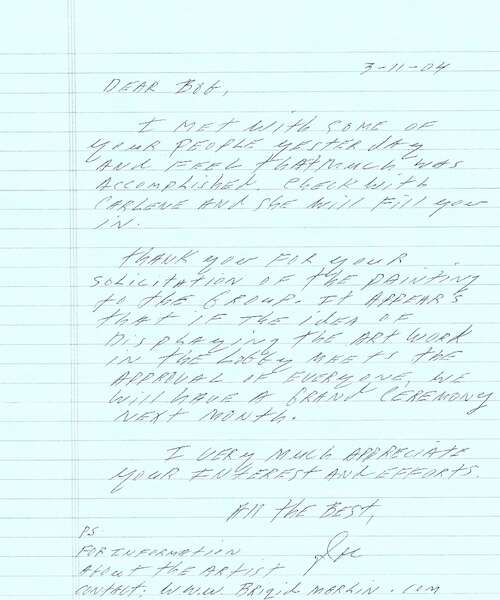 3-11-04
DEAR BOB,
I MET WITH SOME OF
YOUR PEOPLE YESTERDAY
AND FEEL THAT MUCH WAS
ACCOMPLISHED. CHECK WITH
CARLENE AND SHE WILL FILL YOU
IN.
THANK YOU FOR YOUR
SOLICITATION OF THE PAINTING
TO THE GROUP. IT APPEARS
THAT IF THE IDEA OF
DISPLAYING THE ART WORK
IN THE LOBBY MEETS THE
APPROVAL OF EVERYONE, WE
WILL HAVE A GRAND CEREMONY
NEXT MONTH.
I VERY MUCH APPRECIATE
YOUR INTEREST AND EFFORTS.
All THE BEST,
PS
FOR INFORMATION
ABOUT THE ARTIST
CONTACT: WWW. BRIGID MARLIN . COM